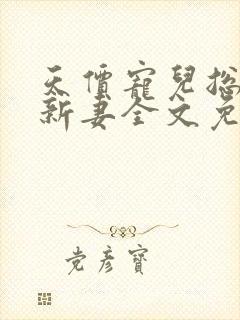 天價寵兒総
新妻全文免
党彦寶